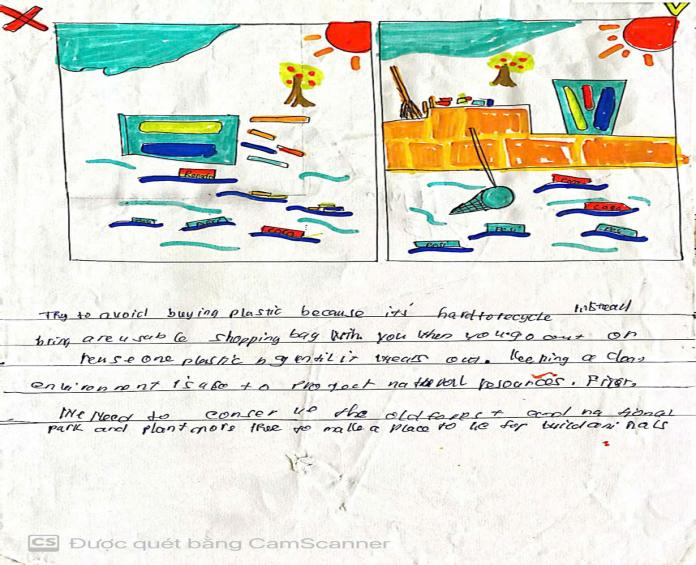 Coca
Pepsi
Try to avoid buying plastic because its hard to recycle instead
bring areusable shopping bag with you when you go out on
reuse one plastic bag until it wears out. Keeping a clean
environment is also to Project natural resources.
We Need to conserve the old forest and national
park and plant more tree to make a place to lie for wild animals
CS Được quét bằng CamScanner